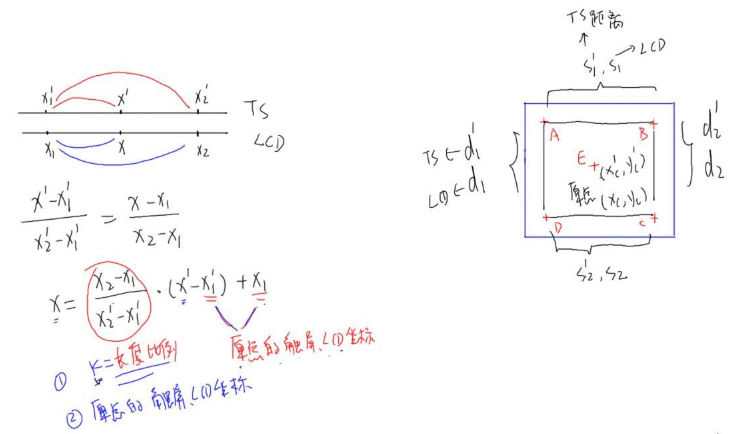 x₁' x' x₂' TS
x₁ x x₂ LCD
(x'-x₁')/(x₂'-x₁') = (x-x₁)/(x₂-x₁)
x = (x₂-x₁)/(x₂'-x₁') · (x'-x₁') + x₁
① K=长度比例
原点的触屏、LCD坐标
② 原点的触屏、LCD坐标
TS距离
S₁', S₁ → LCD
A B
TS ← d₁' d₂'
LCD ← d₁ d₂
E (x_c', y_c')
原点 (x_c, y_c)
D C
S₂', S₂